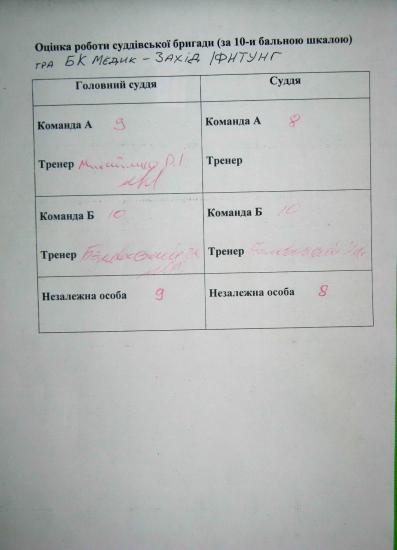 Оцінка роботи суддівської бригади (за 10-и бальною шкалою)
гра БК Медик - Захід /ФНТУНГ
Головний суддя Суддя
Команда А 9 Команда А 8
Тренер Тренер
Команда Б 10 Команда Б 10
Тренер Тренер
Незалежна особа 9 Незалежна особа 8